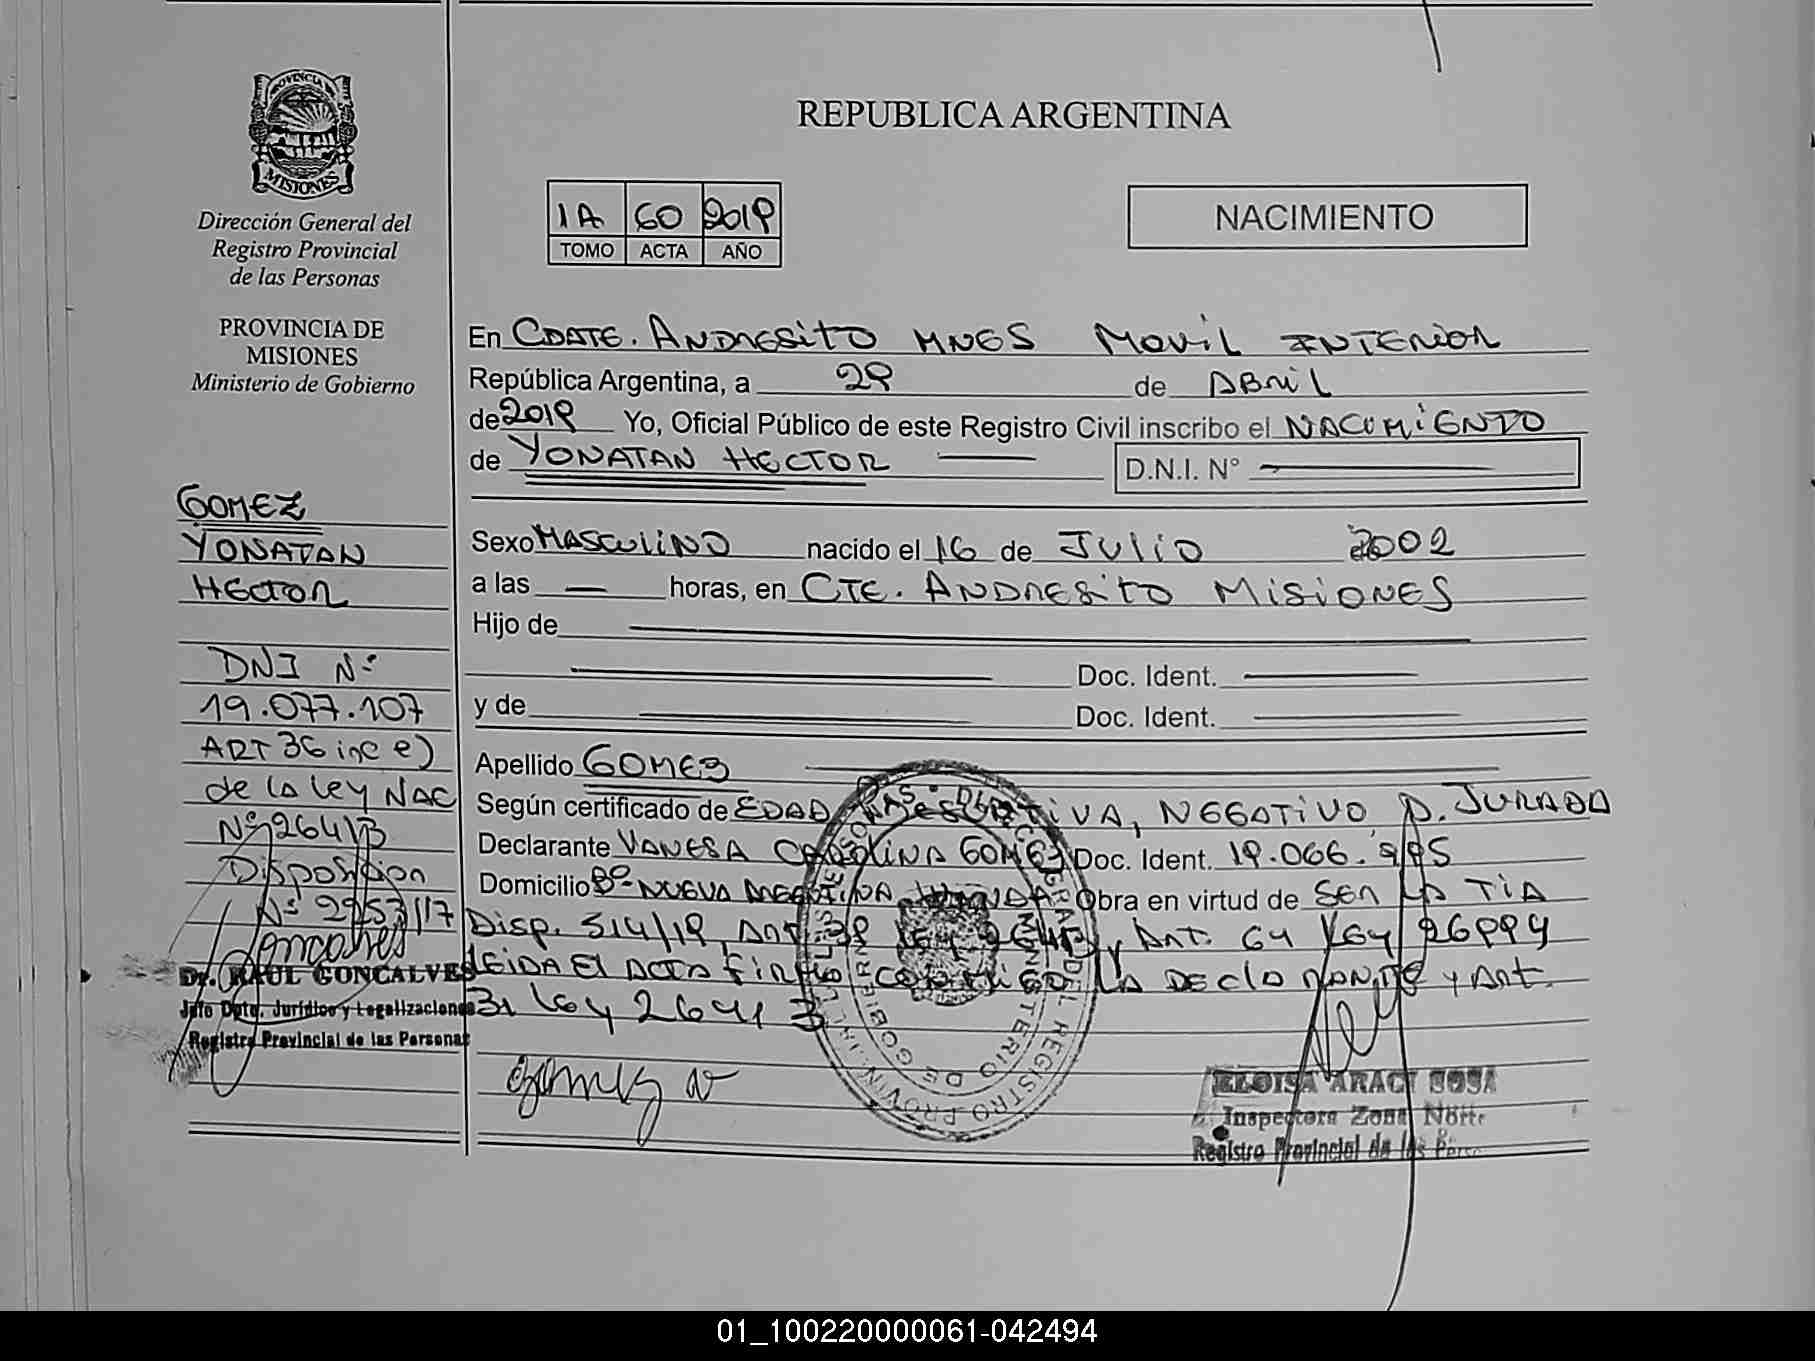 PROVINCIA DE
MISIONES
Dirección General del
Registro Provincial
de las Personas
PROVINCIA DE
MISIONES
Ministerio de Gobierno
GOMEZ
YONATAN
HECTOR
DNI Nº
19.077.107
ART 36 inc e)
de la ley NAC
Nº 26413
Disposicion
Nº 2253/17
Goncalves
Dr. RAUL GONCALVES
Jefe Dpto. Jurídico y Legalizaciones
Registro Provincial de las Personas
REPUBLICA ARGENTINA
1A 60 2019
TOMO ACTA AÑO
NACIMIENTO
En CDATE. ANDRESITO MNES MOVIL INTERIOR
República Argentina, a 29 de ABRIL
de 2019 Yo, Oficial Público de este Registro Civil inscribo el NACIMIENTO
de YONATAN HECTOR D.N.I. N°
Sexo MASCULINO nacido el 16 de JULIO 2002
a las — horas, en CTE. ANDRESITO MISIONES
Hijo de
Doc. Ident.
y de Doc. Ident.
Apellido GOMEZ
Según certificado de EDAD PRESUNTIVA, NEGATIVO D. JURADA
Declarante VANESA CAROLINA GOMEZ Doc. Ident. 19.066.
Domicilio Bº NUEVA ARGENTINA Obra en virtud de SER LA TIA
Disp. 314/19, ART. 39 LEY 26413 y ART. 64 LEY 26994
LEIDA EL ACTA FIRMA CONMIGO LA DECLARANTE y ART.
31 LEY 26413
Gomez v
REGISTRO PROVINCIAL DE LAS PERSONAS
MINISTERIO DE GOBIERNO
ELOISA ARACI SOSA
Inspectora Zona Norte
Registro Provincial de las Perso
01_100220000061-042494